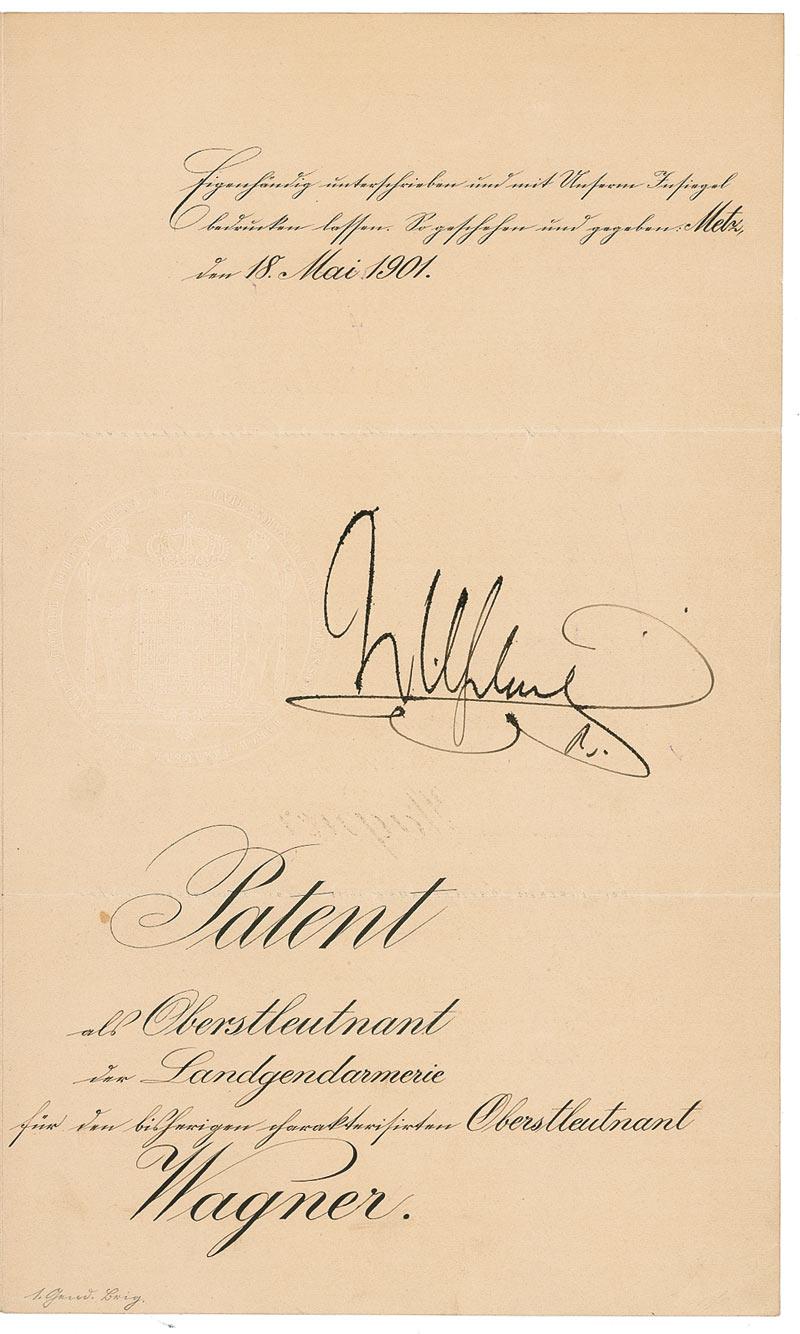 Eigenhändig unterschrieben und mit Unserm Insiegel
bedrucken lassen. So geschehen und gegeben: Metz,
den 18. Mai 1901.
Wilhelm
R.
Patent
als Oberstleutnant
der Landgendarmerie
für den bisherigen charakterisirten Oberstleutnant
Wagner.
1. Gend. Brig.